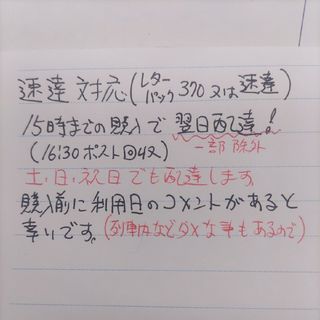 速達対応(レターパック370又は速達)
15時までの購入で翌日配達!
(16:30ポスト回収) 一部除外
土、日、祝日でも配達します
購入前に利用日のコメントがあると
幸いです。(列車内などダメな事もあるので)